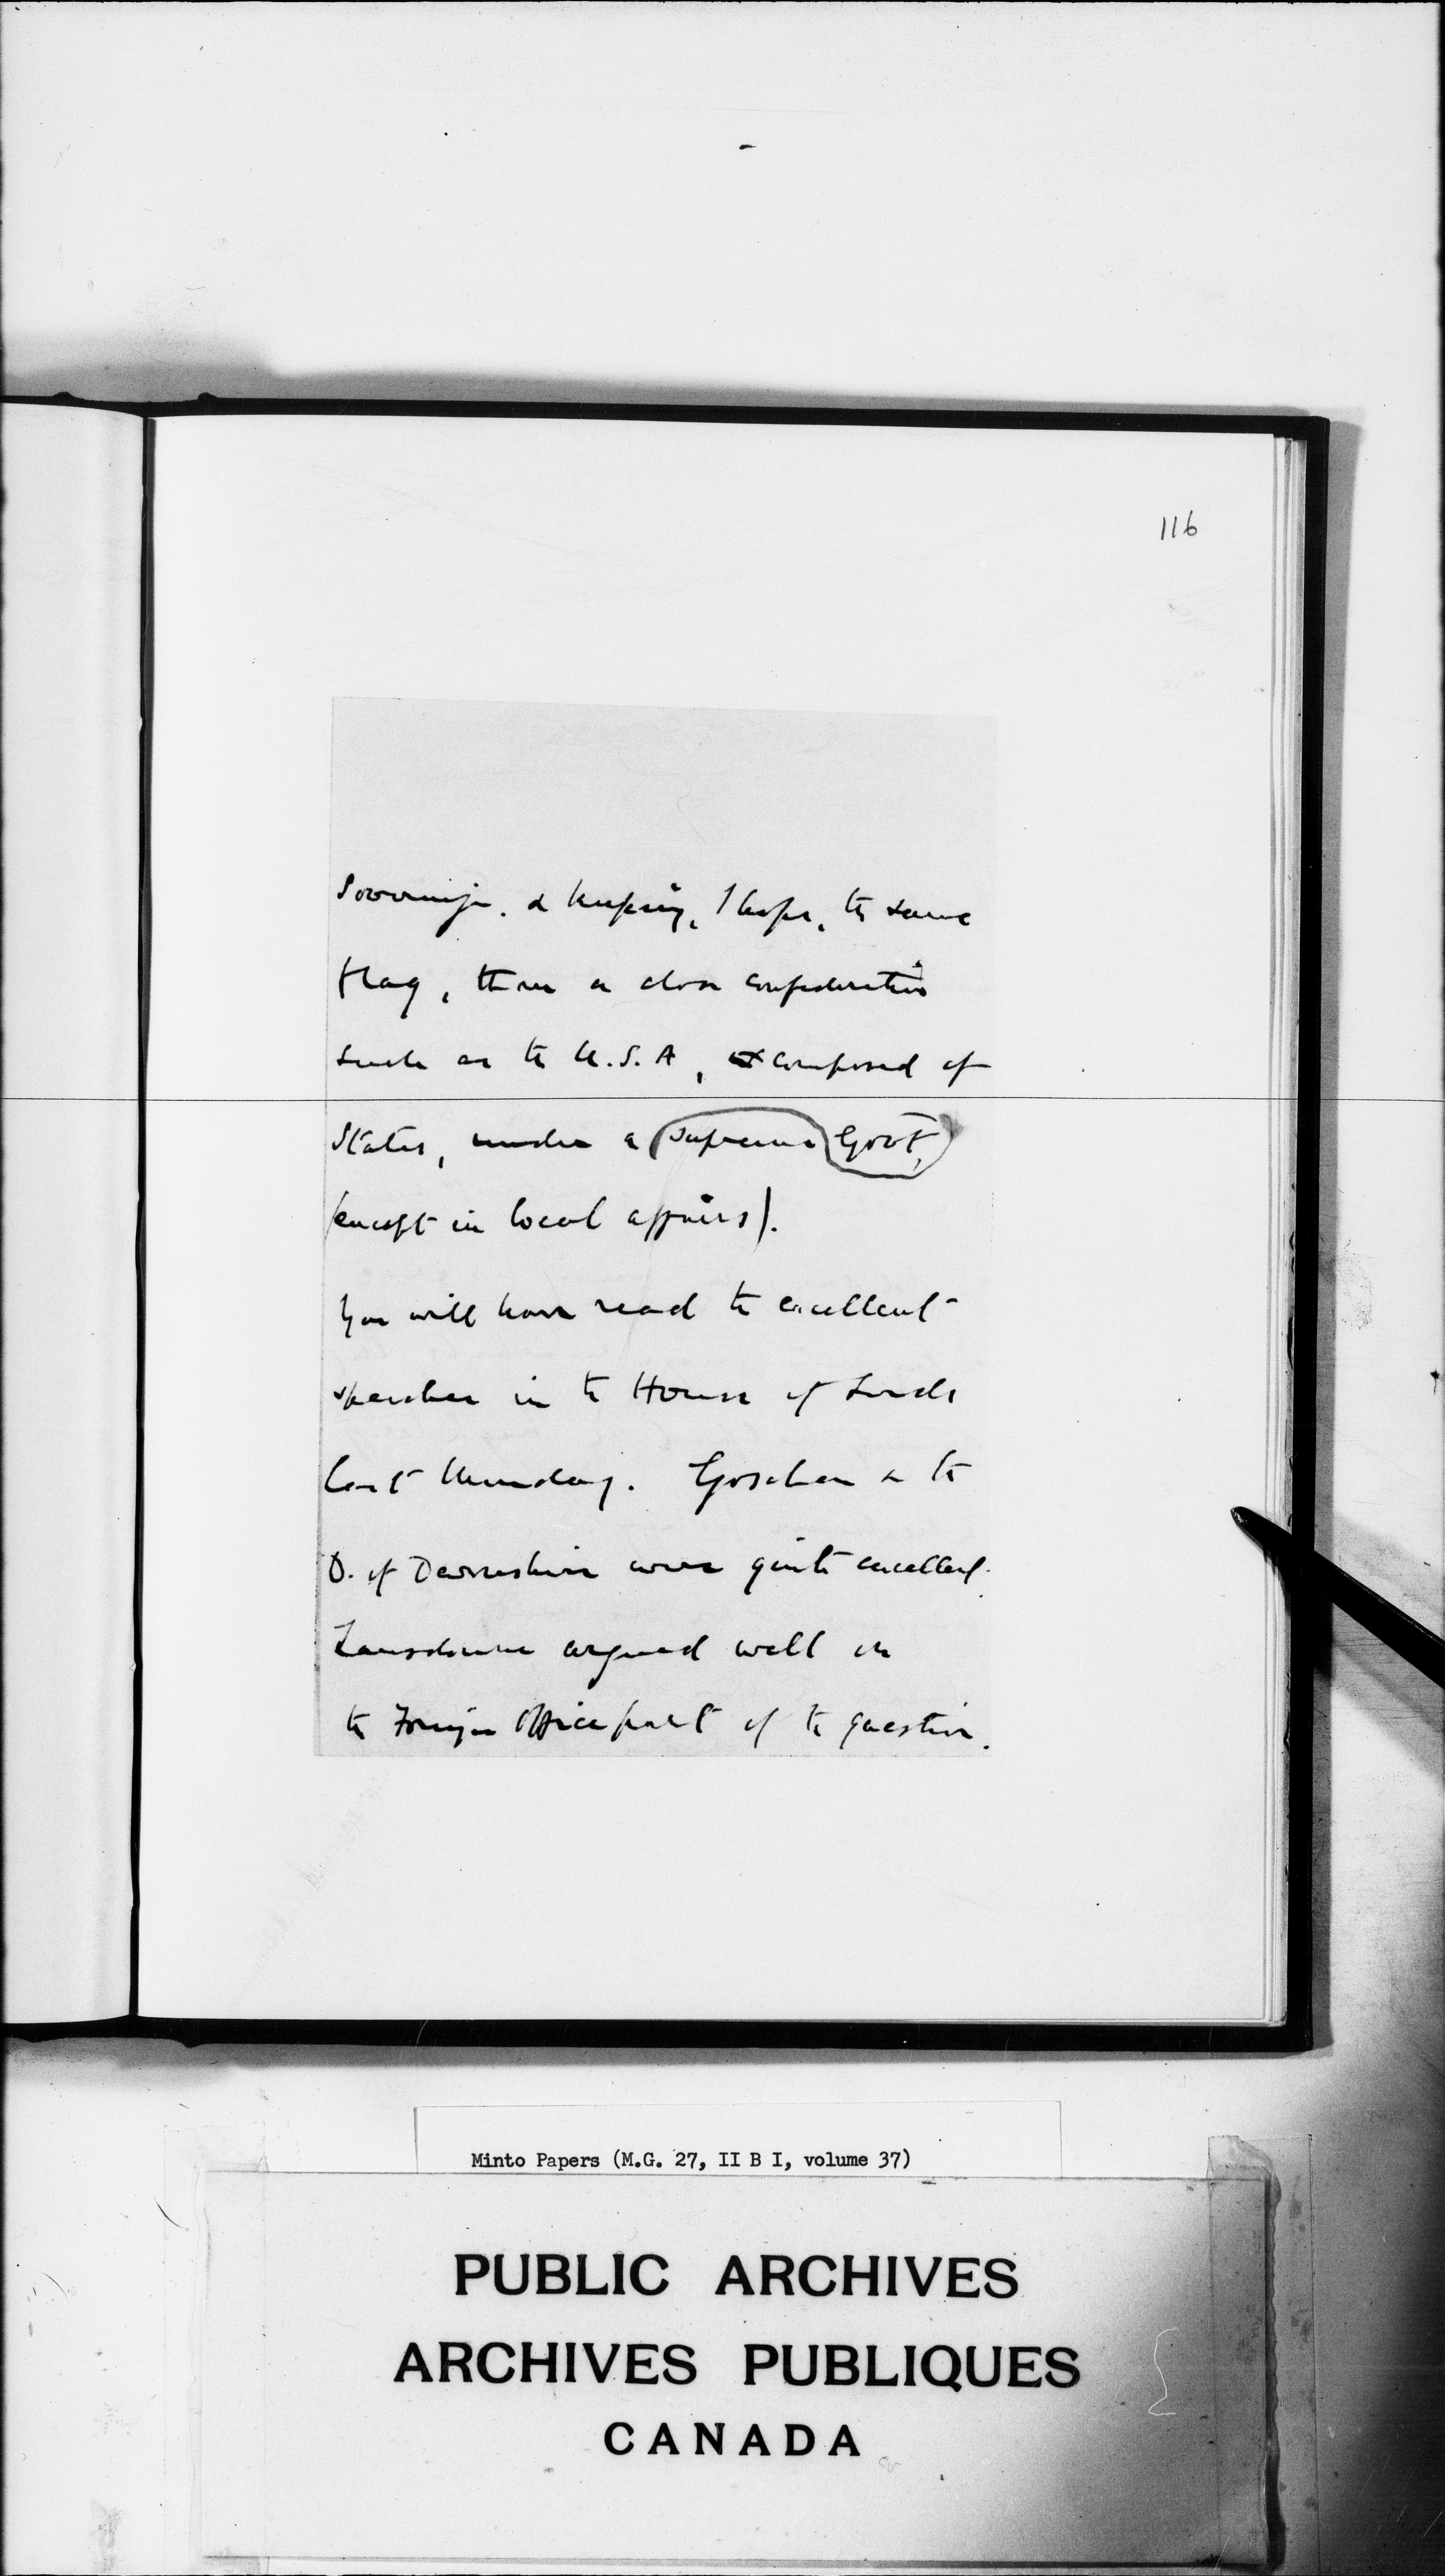 116
Sovereign, & keeping, I hope, the same
flag, than a close confederation
such as the U.S.A, composed of
States, under a supreme Govt,
(except in local affairs).
You will have read the excellent
speeches in the House of Lords
last Monday. Goschen & the
D. of Devonshire were quite excellent.
Lansdowne argued well on
the Foreign Office part of the question.
Minto Papers (M.G. 27, II B I, volume 37)
PUBLIC ARCHIVES
ARCHIVES PUBLIQUES
CANADA